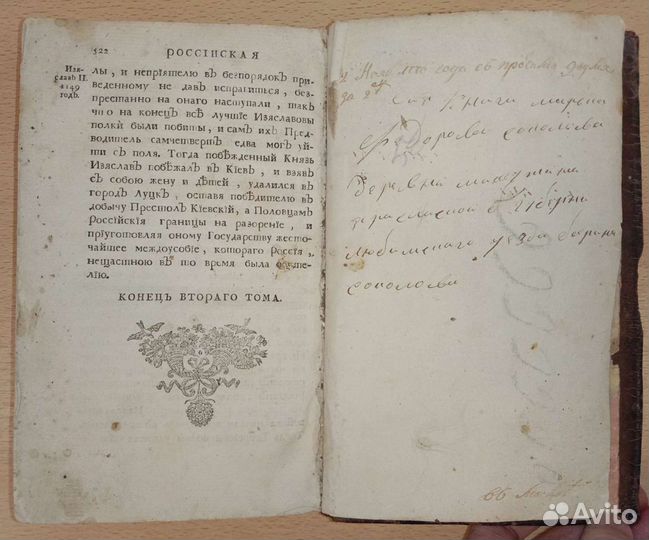 522 РОССІЙСКАЯ
Изя-
славЪ II.
1149
годЪ.
лы, и непрїятелю вЪ безпорядокЪ при-
веденному не давЪ исправиться, без-
престанно на онаго наступали, такЪ
что на конецЪ всѢ лучшїе Изяславовы
полки были побиты, и самЪ ихЪ Пред-
водитель самчетвертЪ едва могЪ уй-
ти сЪ поля. Тогда побѢжденный Князь
ИзяславЪ побѢжалЪ вЪ КїевЪ, и взявЪ
сЪ собою жену и дѢтей, удалился вЪ
городЪ ЛуцкЪ, оставя побѢдителю вЪ
добычу ПрестолЪ Кїевскїй, а ПоловцамЪ
Россїйскїя границы на разоренїе, и
прїуготовляя оному Государству жесто-
чайшее междоусобїе, котораго Россїя,
нещастною вЪ то время была
лїю.
КОНЕЦЪ ВТОРАГО ТОМА.
года съ
Сия Книга
Федорова соколова
Деревни
любимскаго уезда
соколова
Avito